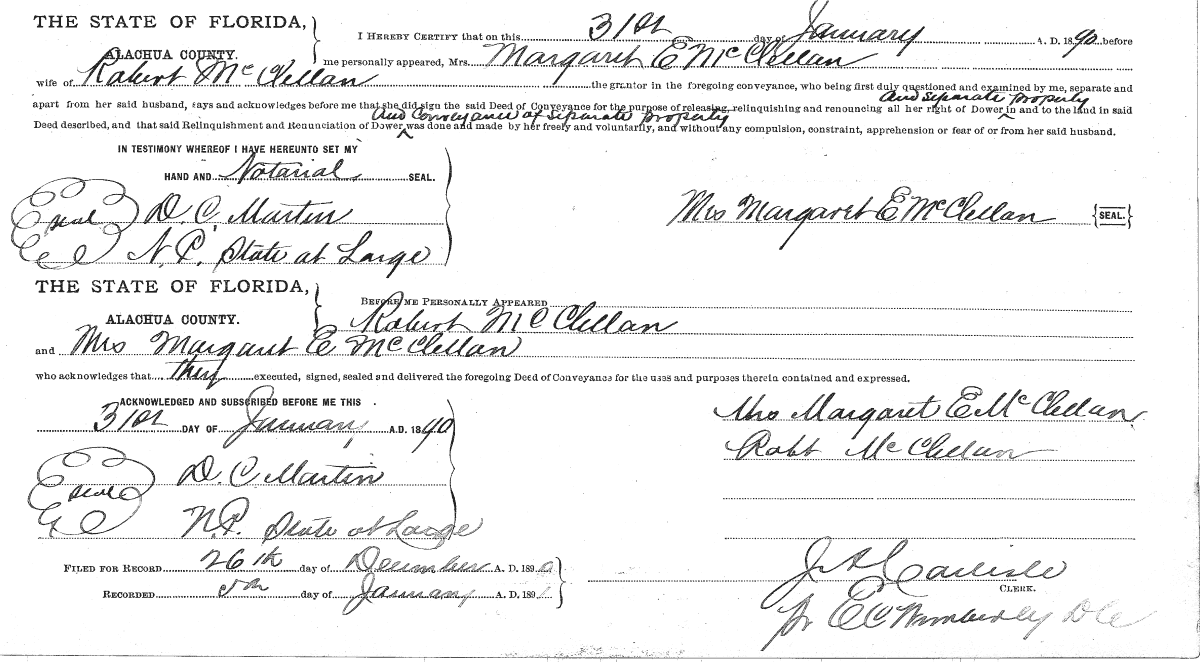 THE STATE OF FLORIDA,
ALACHUA COUNTY.
I HEREBY CERTIFY that on this 31st day of January A. D. 1890 before
me personally appeared, Mrs. Margaret E McClellan
wife of Robert McClellan the grantor in the foregoing conveyance, who being first duly questioned and examined by me, separate and
and separate property
apart from her said husband, says and acknowledges before me that she did sign the said Deed of Conveyance for the purpose of releasing, relinquishing and renouncing all her right of Dower in and to the land in said
and conveyance of separate property
Deed described, and that said Relinquishment and Renunciation of Dower was done and made by her freely and voluntarily, and without any compulsion, constraint, apprehension or fear of or from her said husband.
IN TESTIMONY WHEREOF I HAVE HEREUNTO SET MY
HAND AND Notarial SEAL.
seal D. C. Martin
N.P. State at Large
Mrs Margaret E McClellan {SEAL.}
THE STATE OF FLORIDA,
ALACHUA COUNTY.
BEFORE ME PERSONALLY APPEARED
Robert McClellan
and Mrs Margaret E McClellan
who acknowledges that they executed, signed, sealed and delivered the foregoing Deed of Conveyance for the uses and purposes therein contained and expressed.
ACKNOWLEDGED AND SUBSCRIBED BEFORE ME THIS
31st DAY OF January A.D. 1890
seal D. C. Martin
N.P. State at Large
Mrs Margaret E. McClellan
Robt McClellan
FILED FOR RECORD 26th day of December A. D. 1890
RECORDED 5th day of January A. D. 1891
J A Carlisle
CLERK.
pr E C Wimberly D C